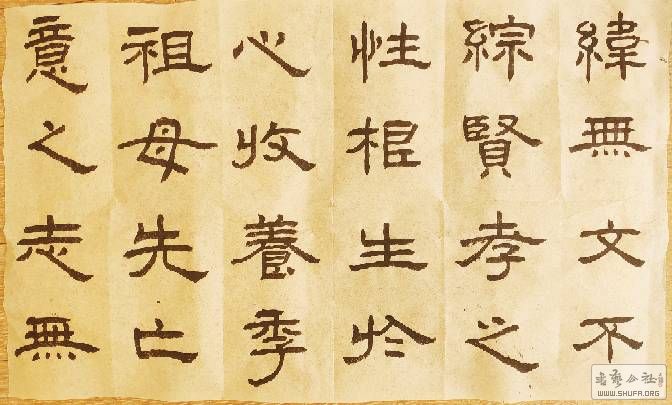 緯無文不
綜賢孝之
性根生於
心收養季
祖母先亡
意之志無
书艺公社
WWW.SHUFA.ORG